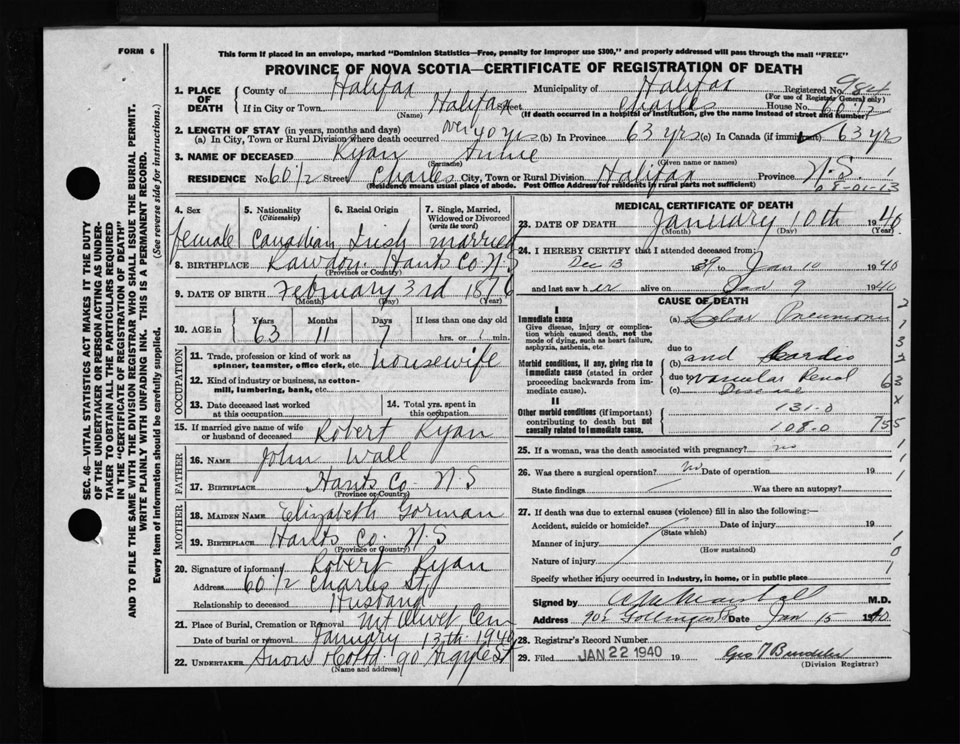 FORM 6
This form if placed in an envelope, marked "Dominion Statistics—Free, penalty for improper use $300," and properly addressed will pass through the mail "FREE"
PROVINCE OF NOVA SCOTIA—CERTIFICATE OF REGISTRATION OF DEATH
SEC. 46—VITAL STATISTICS ACT MAKES IT THE DUTY
OF THE UNDERTAKER OR PERSON ACTING AS UNDER-
TAKER TO OBTAIN ALL THE PARTICULARS REQUIRED
IN THE "CERTIFICATE OF REGISTRATION OF DEATH"
AND TO FILE THE SAME WITH THE DIVISION REGISTRAR WHO SHALL ISSUE THE BURIAL PERMIT.
WRITE PLAINLY WITH UNFADING INK. THIS IS A PERMANENT RECORD.
Every item of Information should be carefully supplied.
(See reverse side for instructions.)
1. PLACE OF DEATH
County of Halifax Municipality of Halifax Registered No. 984
(For use of Registrar General only)
If in City or Town Halifax Street Charles House No. 60½
(Name) (If death occurred in a hospital or institution, give the name instead of street and number)
2. LENGTH OF STAY (in years, months and days)
(a) In City, Town or Rural Division where death occurred over 40 yrs (b) In Province 63 yrs (c) In Canada (if immigrant) 63 yrs
3. NAME OF DECEASED Ryan Annie
(Surname) (Given name or names)
RESIDENCE No. 60½ Street Charles City, Town or Rural Division Halifax Province N.S.
(Residence means usual place of abode. Post Office Address for residents in rural parts not sufficient)
08-01-13
4. Sex
female
5. Nationality
(Citizenship)
Canadian
6. Racial Origin
Irish
7. Single, Married,
Widowed or Divorced
(write the word)
married
8. BIRTHPLACE Rawdon Hants Co N S
(Province or Country)
9. DATE OF BIRTH February 3rd 1876
(Month) (Day) (Year)
10. AGE in Years Months Days If less than one day old
63 11 7 hrs. or min.
OCCUPATION
11. Trade, profession or kind of work as
spinner, teamster, office clerk, etc. housewife
12. Kind of industry or business, as cotton-
mill, lumbering, bank, etc.
13. Date deceased last worked
at this occupation
14. Total yrs. spent in
this occupation
15. If married give name of wife
or husband of deceased Robert Ryan
FATHER
16. NAME John Wall
17. BIRTHPLACE Hants Co N S
(Province or Country)
MOTHER
18. MAIDEN NAME Elizabeth Gorman
19. BIRTHPLACE Hants Co. N S
(Province or Country)
20. Signature of informant Robert Ryan
Address 60½ Charles St
Relationship to deceased Husband
21. Place of Burial, Cremation or Removal Mt Olivet Cem
Date of burial or removal January 13th 1940
22. UNDERTAKER Snow & Co Ltd 90 Argyle St
(Name and address)
MEDICAL CERTIFICATE OF DEATH
23. DATE OF DEATH January 10th 1940.
(Month) (Day) (Year)
24. I HEREBY CERTIFY that I attended deceased from:
Dec 13 1939 to Jan 10 1940
and last saw her alive on Jan 9 1940
CAUSE OF DEATH
I
Immediate cause
Give disease, injury or complica-
tion which caused death, not the
mode of dying, such as heart failure,
asphyxia, asthenia, etc.
(a) Lobar Pneumonia
Morbid conditions, if any, giving rise to
immediate cause (stated in order
proceeding backwards from im-
mediate cause).
due to
(b) and Cardio
due to
(c) vascular Renal
Disease
II
Other morbid conditions (if important)
contributing to death but not
causally related to immediate cause.
131.0
108.0
25. If a woman, was the death associated with pregnancy? no
26. Was there a surgical operation? No Date of operation 19
State findings Was there an autopsy?
27. If death was due to external causes (violence) fill in also the following:
Accident, suicide or homicide? Date of injury 19
(State which)
Manner of injury
(How sustained)
Nature of injury
Specify whether injury occurred in industry, in home, or in public place
Signed by Marshall M.D.
Address Date Jan 15 1940
28. Registrar's Record Number
29. Filed JAN 22 1940 19
(Division Registrar)